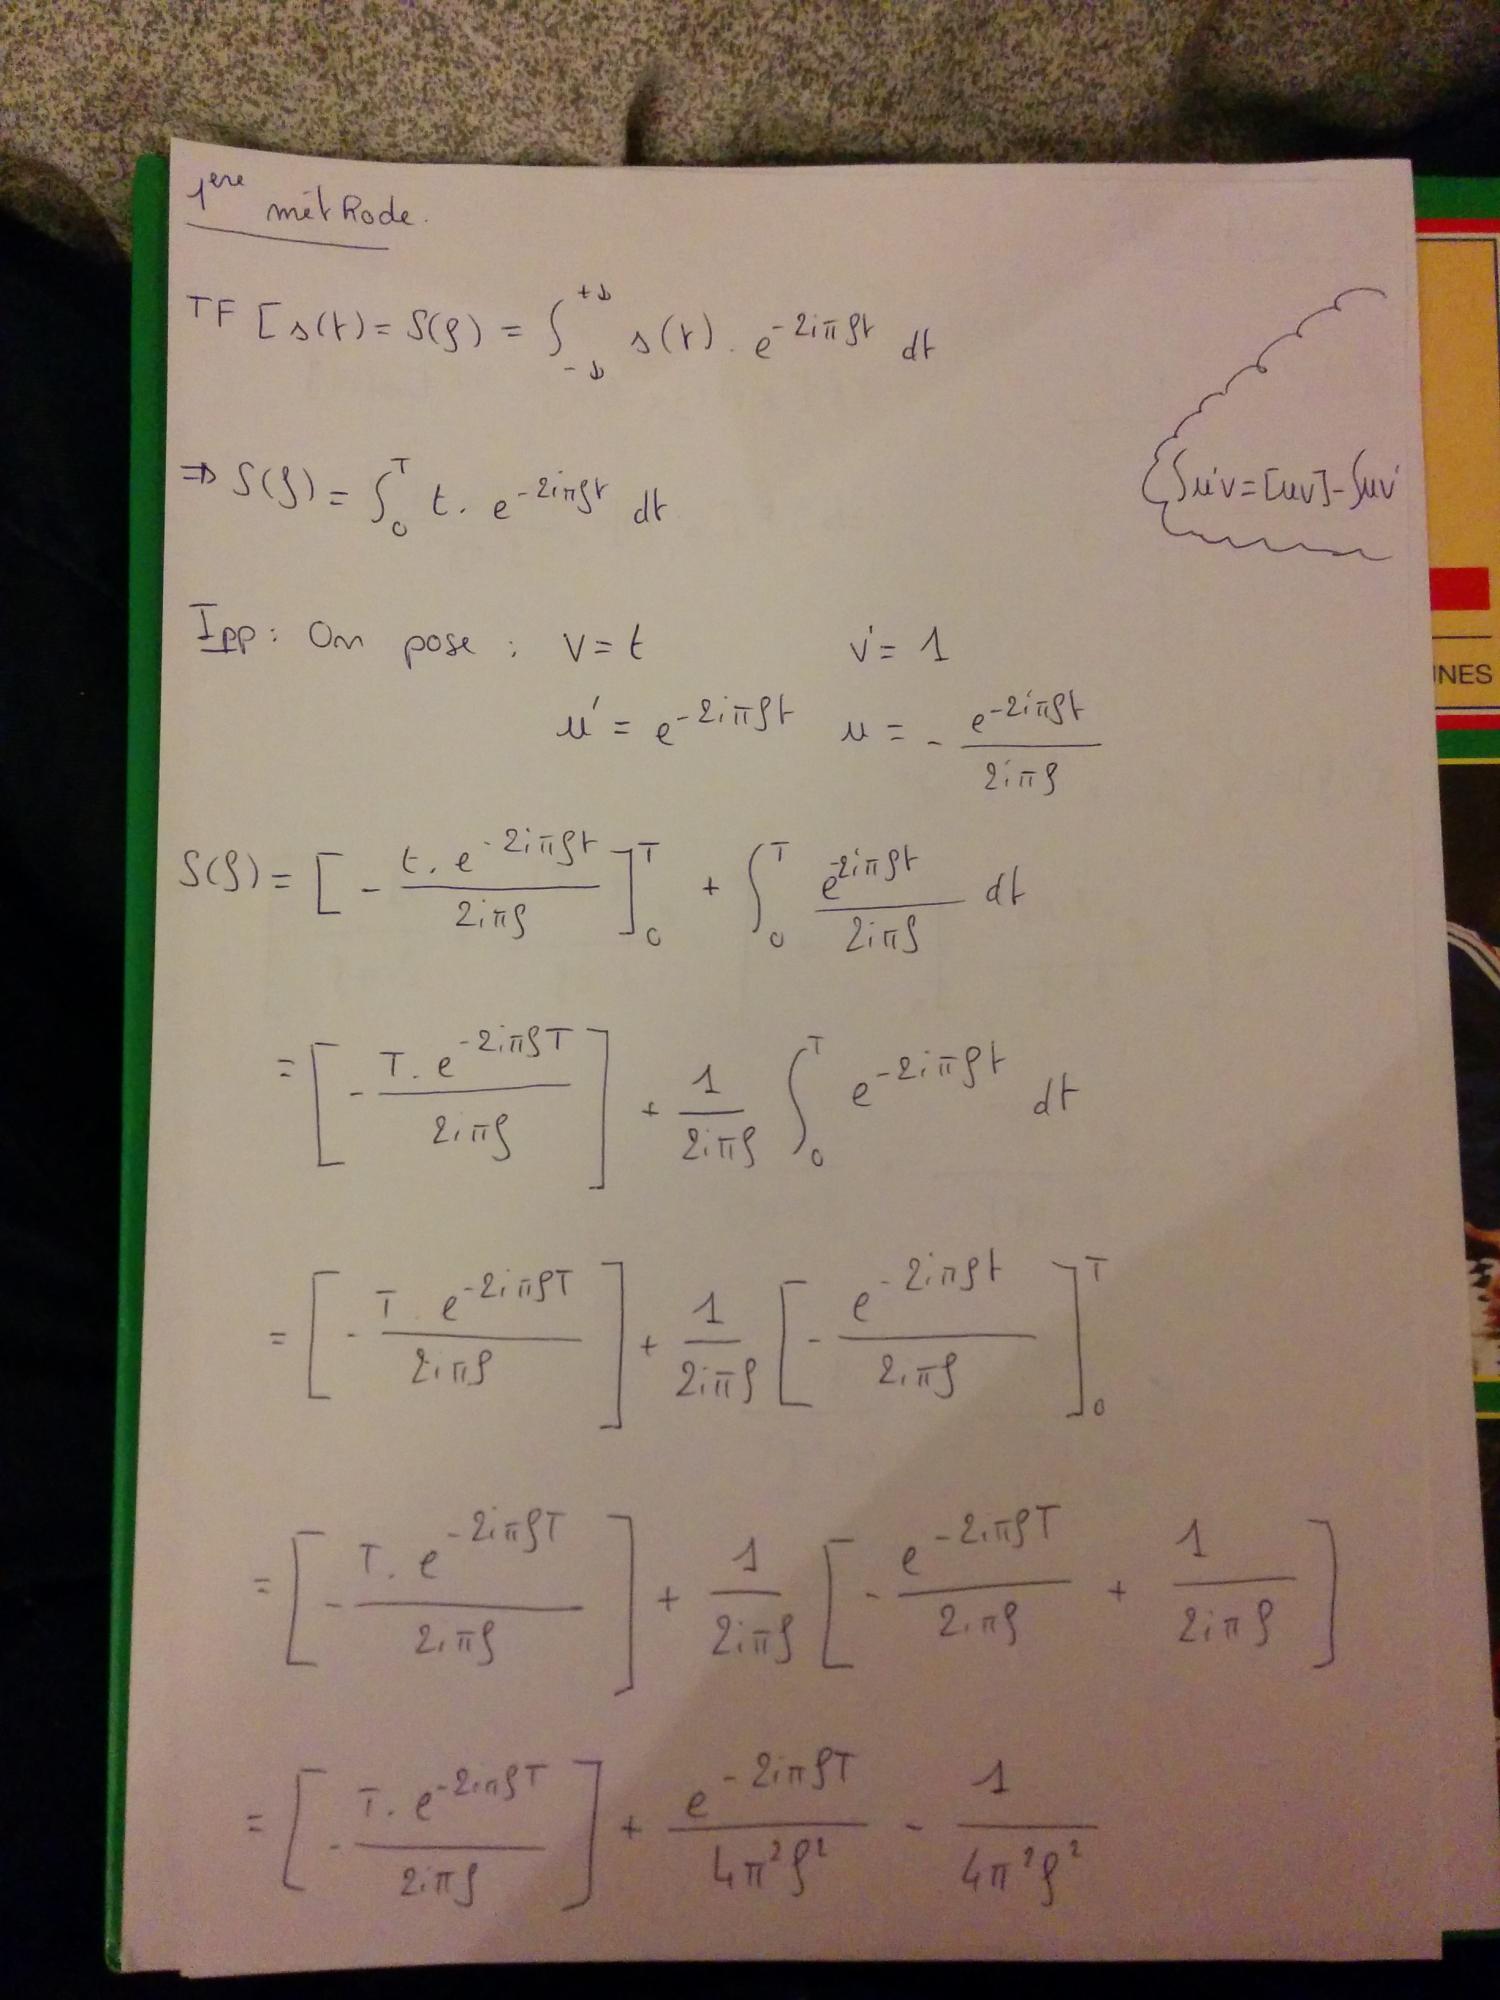 1ere méthode.
TF [s(t) = S(f) = ∫_{-∞}^{+∞} s(t) . e^{-2iπft} dt
⇒ S(f) = ∫_0^T t . e^{-2iπft} dt
∫u'v = [uv] - ∫uv'
Ipp : On pose : v = t v' = 1
u' = e^{-2iπft} u = - e^{-2iπft} / 2iπf
INES
S(f) = [ - t . e^{-2iπft} / 2iπf ]_0^T + ∫_0^T e^{-2iπft} / 2iπf dt
= [ - T . e^{-2iπfT} / 2iπf ] + 1 / 2iπf ∫_0^T e^{-2iπft} dt
= [ - T . e^{-2iπfT} / 2iπf ] + 1 / 2iπf [ - e^{-2iπft} / 2iπf ]_0^T
= [ - T . e^{-2iπfT} / 2iπf ] + 1 / 2iπf [ - e^{-2iπfT} / 2iπf + 1 / 2iπf ]
= [ - T . e^{-2iπfT} / 2iπf ] + e^{-2iπfT} / 4π²f² - 1 / 4π²f²